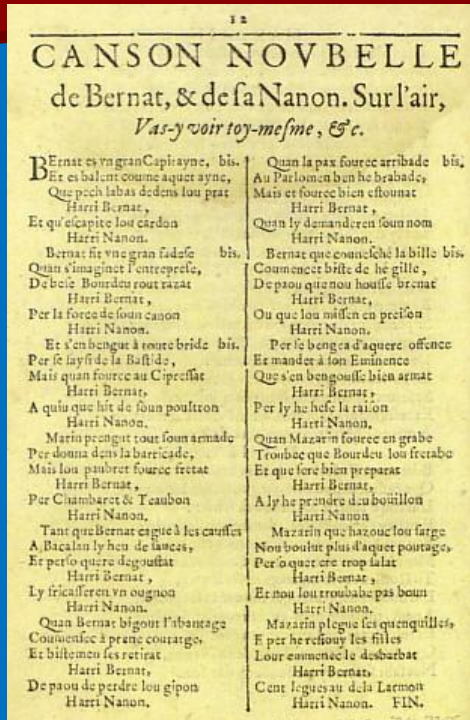 12
CANSON NOVBELLE
de Bernat, & de sa Nanon. Sur l'air,
Vas-y voir toy-mesme, &c.
BErnat es vn gran Capitayne, bis.
Et es balent coume aquet ayne,
Que pech labas dedens lou prat
Harri Bernat,
Et qu'escapite lou cardon
Harri Nanon.
Bernat fit vne gran fadese bis.
Quan s'imaginet l'entreprese,
De bese Bourdeu rout razat
Harri Bernat,
Per la force de soun canon
Harri Nanon.
Et s'en bengut à toute bride bis.
Per se saysi de la Bastide,
Mais quan fourec au Cipressat
Harri Bernat,
A quiu que hit de soun poultron
Harri Nanon.
Marin prengut tout soun armade
Per donna dens la barricade,
Mais lou paubret fourec fretat
Harri Bernat,
Per Chambaret & Teaubon
Harri Nanon.
Tant que Bernat cague à les causses
A Bacalan ly heu de sauces,
Et perso quere degoustat
Harri Bernat,
Ly fricasseren vn ougnon
Harri Nanon.
Quan Bernat bigout l'abantage
Coumensec à prene couratge,
Et bistemen ses retirat
Harri Bernat,
De paou de perdre lou gipon
Harri Nanon.
Quan la pax fourec arribade bis.
Au Parlomen ben he brabade,
Mais et fourec bien estounat
Harri Bernat,
Quan ly demanderen soun nom
Harri Nanon.
Bernat que counesché la bille bis.
Coumencet biste de hé gille,
De paou que nou housse brenat
Harri Bernat,
Ou que lou missen en preison
Harri Nanon.
Per se bengea d'aquere offence
Et mandet à son Eminence
Que s'en bengousse bien armat
Harri Bernat,
Per ly he hese la raison
Harri Nanon.
Quan Mazarin fourec en grabe
Troubec que Bourdeu lou fretabe
Et que sere bien preparat
Harri Bernat,
A ly he prendre deu boüillon
Harri Nanon
Mazarin que hazouc lou farge
Nou boulut plus d'aquet poutage,
Per so quet ere trop salat
Harri Bernat,
Et nou lou troubabe pas boun
Harri Nanon.
Mazarin plegue ses quenquilles,
E per he resiouy les filles
Lour emmenec le desbarbat
Harri Bernat,
Cent legues au dela Larmon
Harri Nanon. FIN.